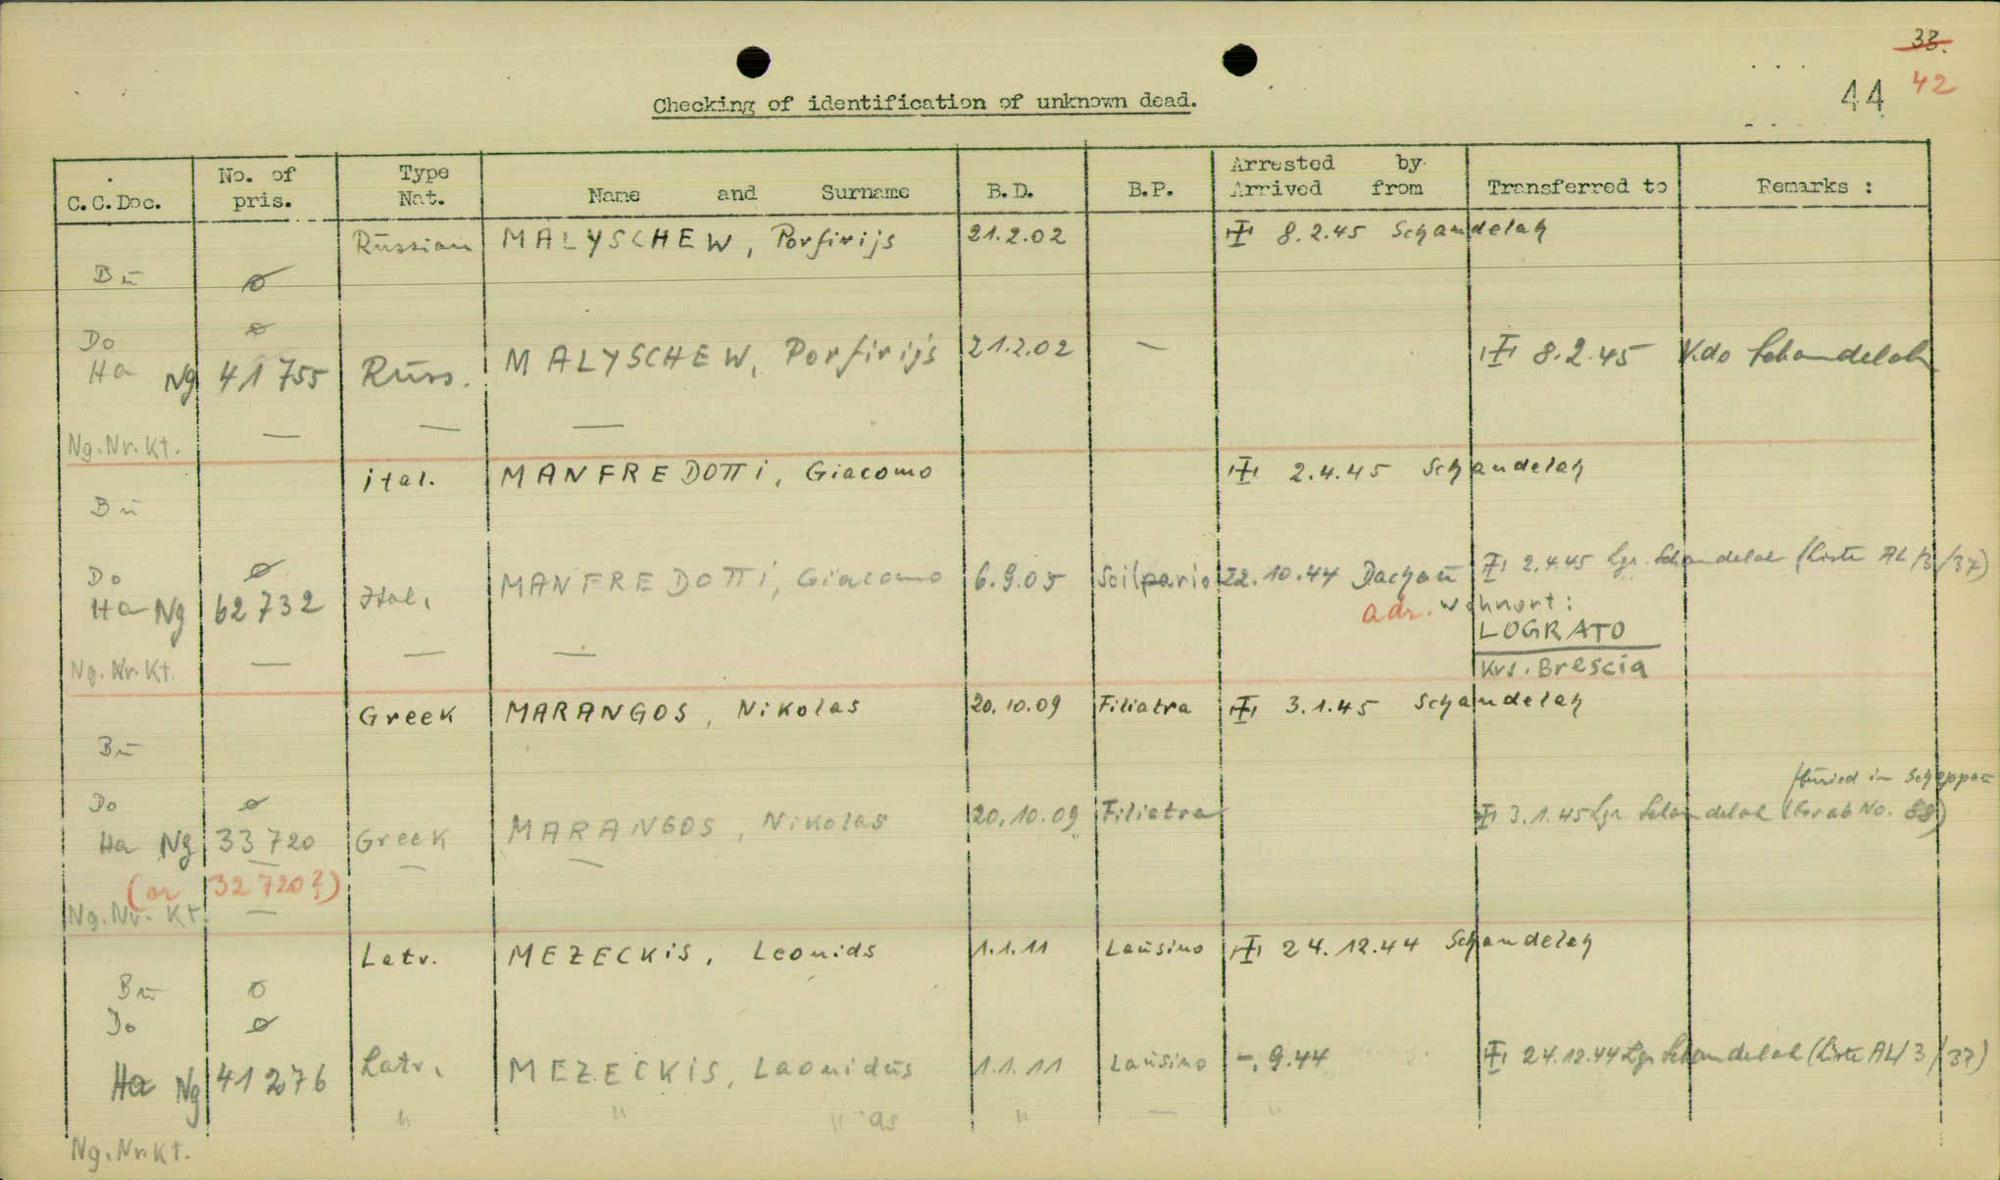 33.
42
44
Checking of identification of unknown dead.
C.C.Doc. No. of pris. Type Nat. Name and Surname B.D. B.P. Arrested by Arrived from Transferred to Remarks :
Russian MALYSCHEW, Porfirijs 21.2.02 8.2.45 Schandelah
Bü ø
Do ø
Ha Ng 41755 Russ. MALYSCHEW, Porfirijs 21.2.02 — 8.2.45 Kdo Schandelah
Ng.Nr.Kt. — — —
ital. MANFREDOTTi, Giacomo 2.4.45 Schandelah
Bü
Do ø
Ha Ng 62732 Ital. MANFREDOTTi, Giacomo 6.9.05 Scilpario 22.10.44 Dachau 2.4.45 Lgr. Schandelah (Liste AL/3/37)
adr. wohnort:
LOGRATO
Krs. Brescia
Ng.Nr.Kt. — — —
Greek MARANGOS, Nikolas 20.10.09 Filiatra 3.1.45 Schandelah
Bü
Do ø
Ha Ng 33720 Greek MARANGOS, Nikolas 20.10.09 Filiatra 3.1.45 Lgr. Schandelah (buried in Scheppau
Grab No. 88)
(or 32720?)
Ng.Nr.Kt. — — —
Letv. MEZECKiS, Leonids 1.1.11 Lausino 24.12.44 Schandelah
Bü ø
Do ø
Ha Ng 41276 Latv. MEZECKiS, Laonidus 1.1.11 Lausino -.9.44 24.12.44 Lgr. Schandelah (Liste AL/3/37)
Ng.Nr.Kt. " " " as " — "